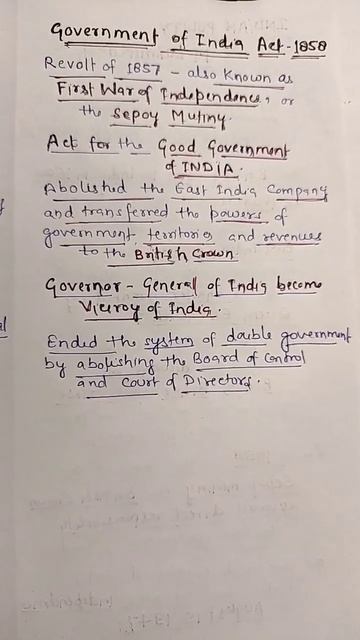 Government of India Act-1858
Revolt of 1857 - also known as
First War of Independence, or
the Sepoy Mutiny.
Act for the Good Government
of INDIA.
Abolished the East India Company
and transferred the powers of
government, territories and revenues
to the British Crown.
Governor-General of India become
Viceroy of India.
Ended the system of double government
by abolishing the Board of Control
and Court of Directors.